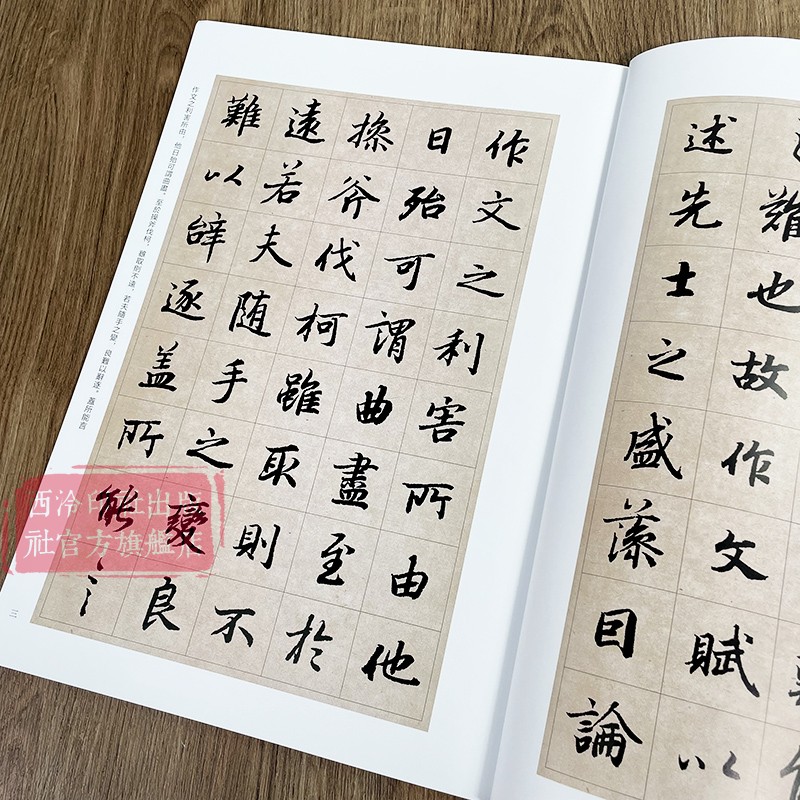 難也故作文賦以
述先士之盛藻因論
作文之利害所由他
日殆可謂曲盡至於
操斧伐柯雖取則不
遠若夫随手之變良
難以辭逐盖所能言
作文之利害所由，他日殆可謂曲盡。至於操斧伐柯，雖取則不遠，若夫隨手之變，良難以辭逐。蓋所能言
三
西泠印社出版
社官方旗艦店